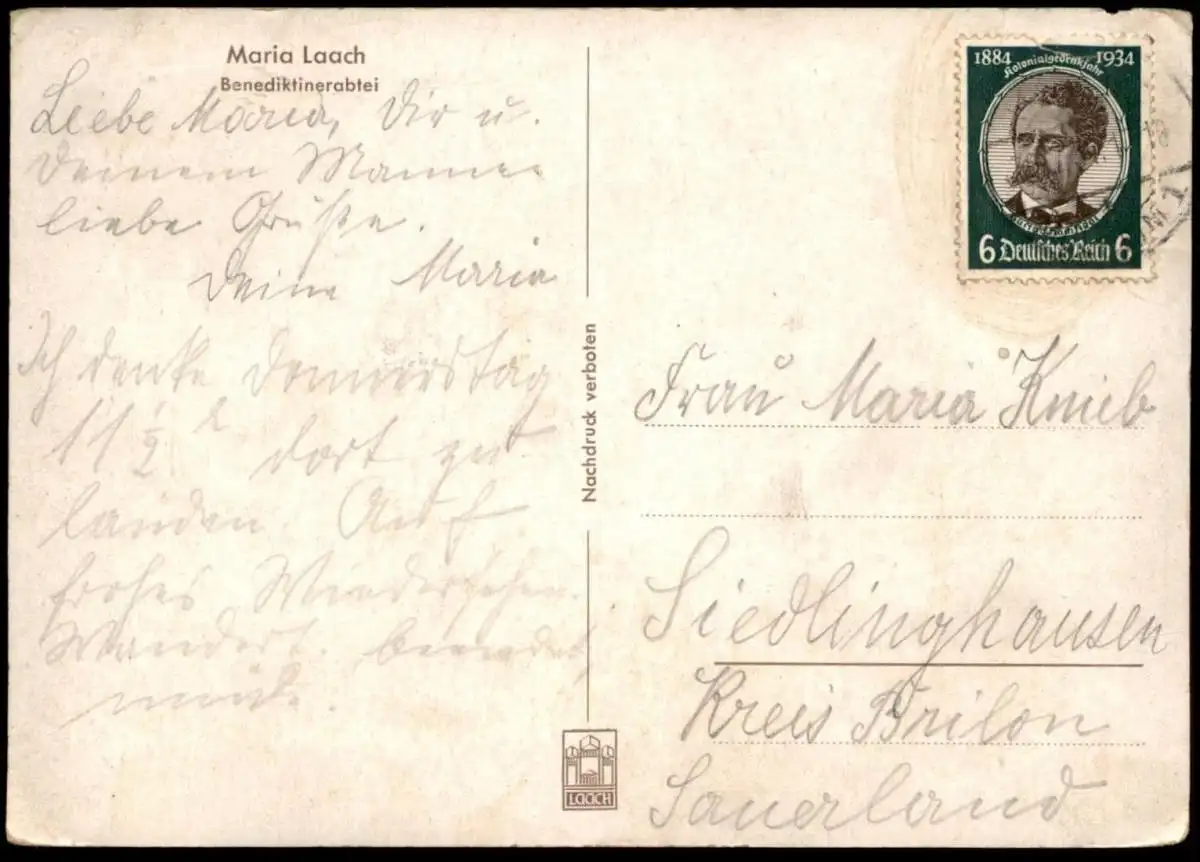 Maria Laach
Benediktinerabtei
Liebe Maria, Dir u.
Deinem Manne
liebe Grüße.
Deine Maria
Ich denke Donnerstag
11 1/2 dort zu
landen. Auf
frohes Wiedersehen.
Wandert. beendet,
müde.
Nachdruck verboten
LAACH
1884 1934
Kolonialgedenkjahr
6 Deutsches Reich 6
Frau Maria Knieb
Siedlinghausen
Kreis Brilon
Sauerland